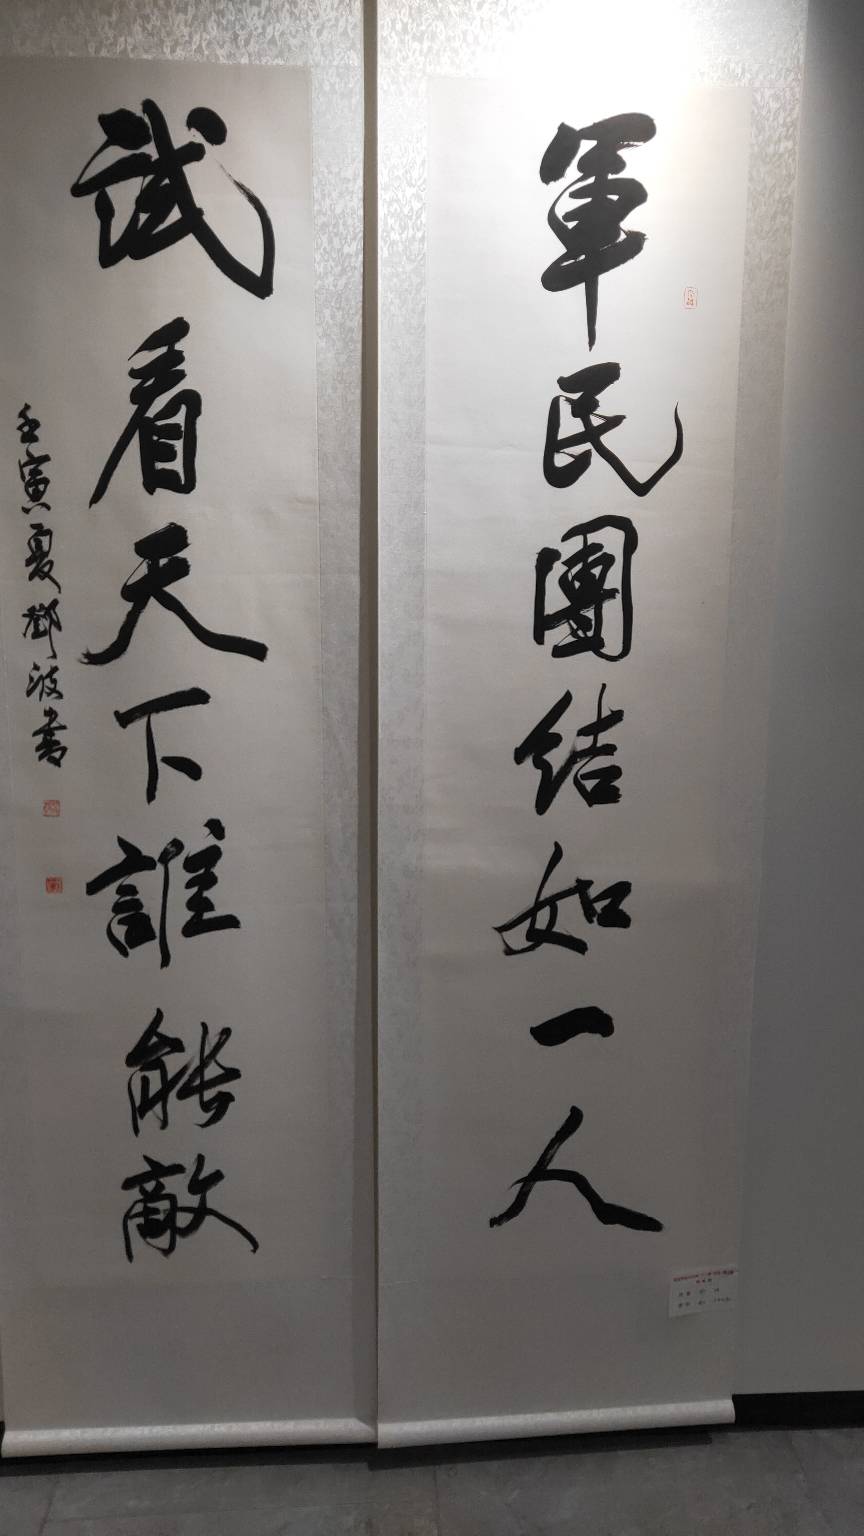 軍民團結如一人
試看天下誰能敵
壬寅夏鄧波書